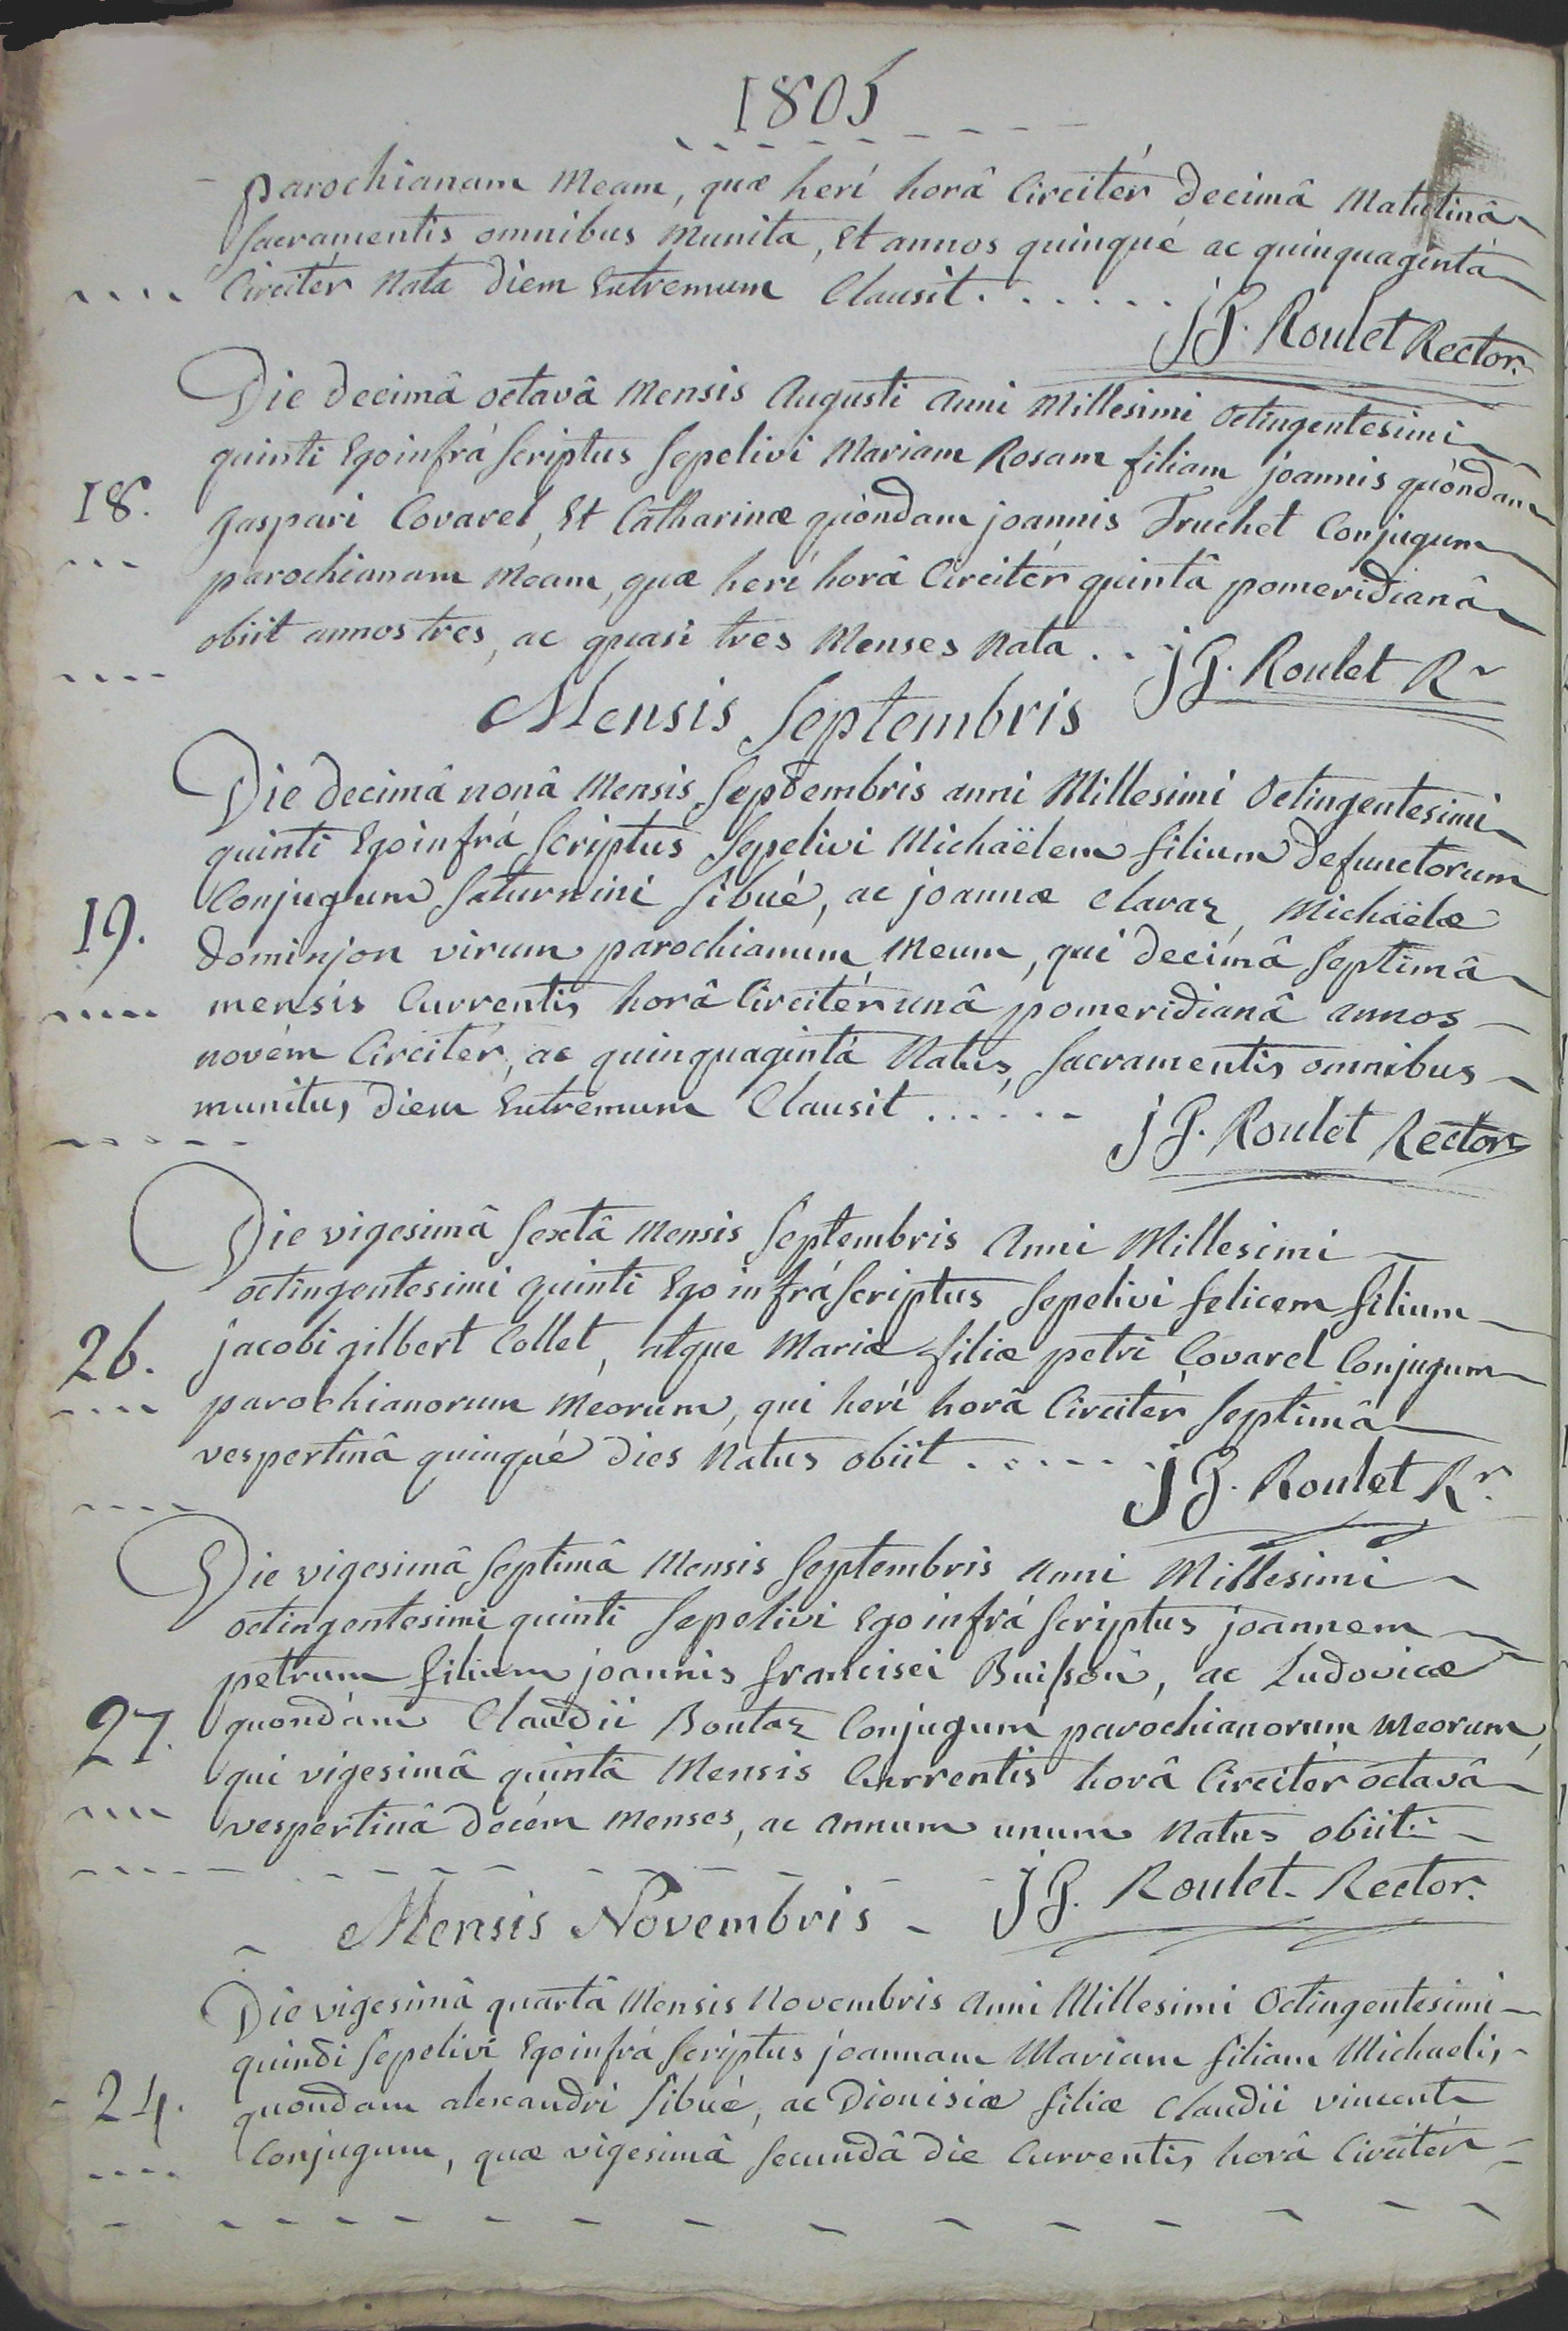 1805
parochianam meam, quæ herí horâ Circitér decimâ matutinâ
sacramentis omnibus munita, Et annos quinqué ac quinquagintá
Circitér nata diem Extremum Clausit . . . . . .
J P. Roulet Rector.
Die decimâ octavâ mensis Augusti anni Millesimi octingentesimi
quinti Ego infrá scriptus sepelivi Mariam Rosam filiam joannis quòndam
18.
gaspari Covarel, Et Catharinæ quòndam joannis Truchet Conjugum
parochianam meam, quæ herí horâ Circitér quintâ pomeridianâ
obiit annos tres, ac quasi tres menses nata . . -
J P. Roulet Rr
Mensis Septembris
Die decimâ nonâ mensis Septembris anni Millesimi Octingentesimi
quinti Ego infrá scriptus sepelivi Michaëlem filium defunctorum
19.
Conjugum saturnini sibué, ac joannæ claraz, Michaëlæ
dominjon virum parochianum meum, qui decimâ septimâ
mensis Currentis horâ Circitér unâ pomeridianâ annos
novém Circitér, ac quinquagintá natus, sacramentis omnibus
munitus diem Extremum Clausit . . . . . -
J P. Roulet Rector
Die vigesimâ sextâ mensis septembris anni Millesimi
octingentesimi quinti Ego infrá scriptus sepelivi felicem filium
26.
jacobi gilbert Collet, atque Mariæ filiæ petri Covarel Conjugum
parochianorum meorum, qui herí horâ Circitér septimâ
vespertinâ quinqué dies natus obiit . . . - - -
J P. Roulet Rr.
Die vigesimâ septimâ mensis septembris anni Millesimi
octingentesimi quinti sepelivi Ego infrá scriptus joannem
petrum filium joannis francisci Buisson, ac Ludovicæ
27.
quondám Claudii Boutaz Conjugum parochianorum meorum,
qui vigesimâ quintâ mensis Currentis horâ Circitér octavâ
vespertinâ decém menses, ac annum unum natus obiit
J P. Roulet. Rector.
Mensis Novembris
Die vigesimâ quartâ mensis novembris anni Millesimi Octingentesimi
quinti sepelivi Ego infrá scriptus joannam Mariam filiam Michaelis
24.
quondam alexandri sibué, ac Dionisiæ filiæ claudii vincent
Conjugum, quæ vigesimâ secundâ die Currentis horâ Circitér